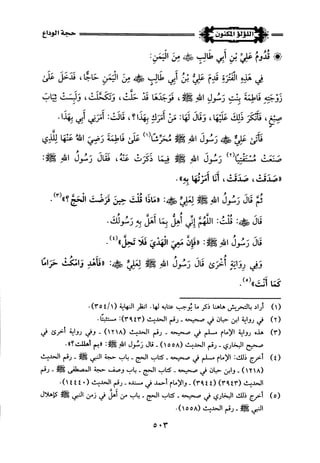 اللؤلؤ المكنون
حجة الوداع
* قُدُومُ عَلِيِّ بْنِ أَبِي طَالِبٍ ﵁ مِنَ الْيَمَنِ:
فِي هَذِهِ الْفَتْرَةِ قَدِمَ عَلِيُّ بْنُ أَبِي طَالِبٍ ﵁ مِنَ الْيَمَنِ حَاجًّا، فَدَخَلَ عَلَى
زَوْجَتِهِ فَاطِمَةَ بِنْتِ رَسُولِ اللهِ ﷺ، فَوَجَدَهَا قَدْ حَلَّتْ، وَتَكَحَّلَتْ، وَلَبِسَتْ ثِيَابَ
صِبْغٍ، فَأَنْكَرَ ذَلِكَ عَلَيْهَا، وَقَالَ لَهَا: مَنْ أَمَرَكِ بِهَذَا؟، قَالَتْ: أَمَرَنِي أَبِي بِهَذَا.
فَأَتَى عَلِيٌّ ﵁ رَسُولَ اللهِ ﷺ مُحَرِّشًا(١) عَلَى فَاطِمَةَ رَضِيَ اللهُ عَنْهَا لِلَّذِي
صَنَعَتْ مُسْتَفْتِيًا(٢) رَسُولَ اللهِ ﷺ فِيمَا ذَكَرَتْ عَنْهُ، فَقَالَ رَسُولُ اللهِ ﷺ:
«صَدَقَتْ، صَدَقَتْ، أَنَا أَمَرْتُهَا بِهِ».
ثُمَّ قَالَ رَسُولُ اللهِ ﷺ لِعَلِيٍّ ﵁: «مَاذَا قُلْتَ حِينَ فَرَضْتَ الْحَجَّ؟»(٣).
قَالَ ﵁: قُلْتُ: اللَّهُمَّ إِنِّي أُهِلُّ بِمَا أَهَلَّ بِهِ رَسُولُكَ.
قَالَ رَسُولُ اللهِ ﷺ: «فَإِنَّ مَعِيَ الْهَدْيَ فَلَا تَحِلُّ»(٤).
وَفِي رِوَايَةٍ أُخْرَى قَالَ رَسُولُ اللهِ ﷺ لِعَلِيٍّ ﵁: «فَأَهْدِ وَامْكُثْ حَرَامًا
كَمَا أَنْتَ»(٥).
(١) أراد بالتحريش هاهنا ذكر ما يُوجب عتابه لها. انظر النهاية (١/٣٥٤).
(٢) في رواية ابن حبان في صحيحه - رقم الحديث (٣٩٤٣): مستثبتًا.
(٣) هذه رواية الإمام مسلم في صحيحه - رقم الحديث (١٢١٨) - وفي رواية أخرى في
صحيح البخاري - رقم الحديث (١٥٥٨) - قال رَسُول الله ﷺ: «بم أهللت؟».
(٤) أخرج ذلك: الإمام مسلم في صحيحه - كتاب الحج - باب حجة النبي ﷺ - رقم الحديث
(١٢١٨) - وابن حبان في صحيحه - كتاب الحج - باب وصف حجة المصطفى ﷺ - رقم
الحديث (٣٩٤٣) (٣٩٤٤) - والإمام أحمد في مسنده - رقم الحديث (١٤٤٤٠).
(٥) أخرج ذلك البخاري في صحيحه - كتاب الحج - باب من أهلَّ في زمن النبي ﷺ كإهلال
النبي ﷺ - رقم الحديث (١٥٥٨).
٥٠٣